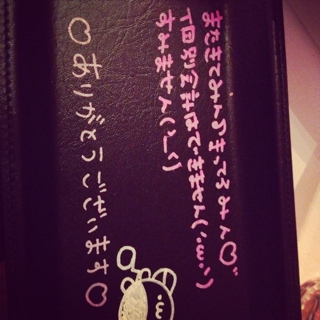 またきてみんなまってるみん♡
丁回別会計はできません(´;ω;｀)
すみません(>_<)
♡ありがとうございます♡